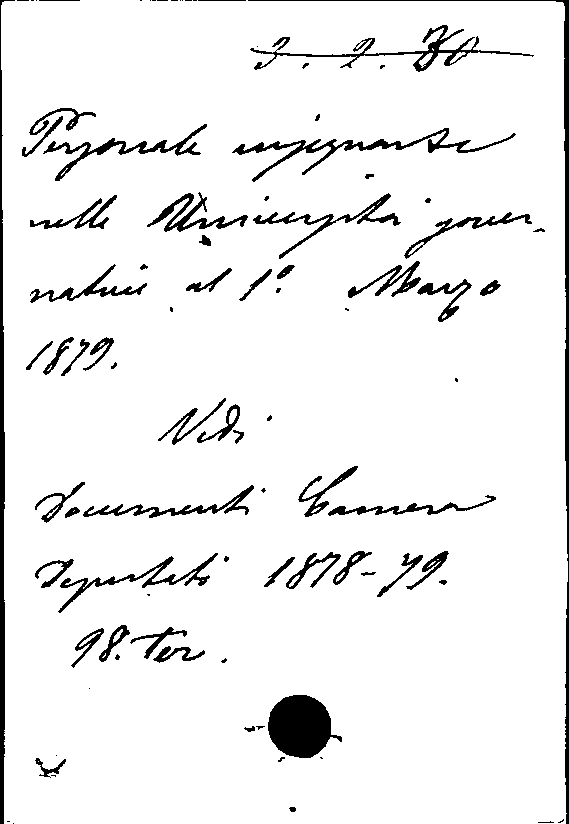 3. 2. 30
Personale insegnante
nelle Università gover-
native al 1º Marzo
1879.
Vedi
Documenti Camera
Deputati 1878-79.
98. ter.